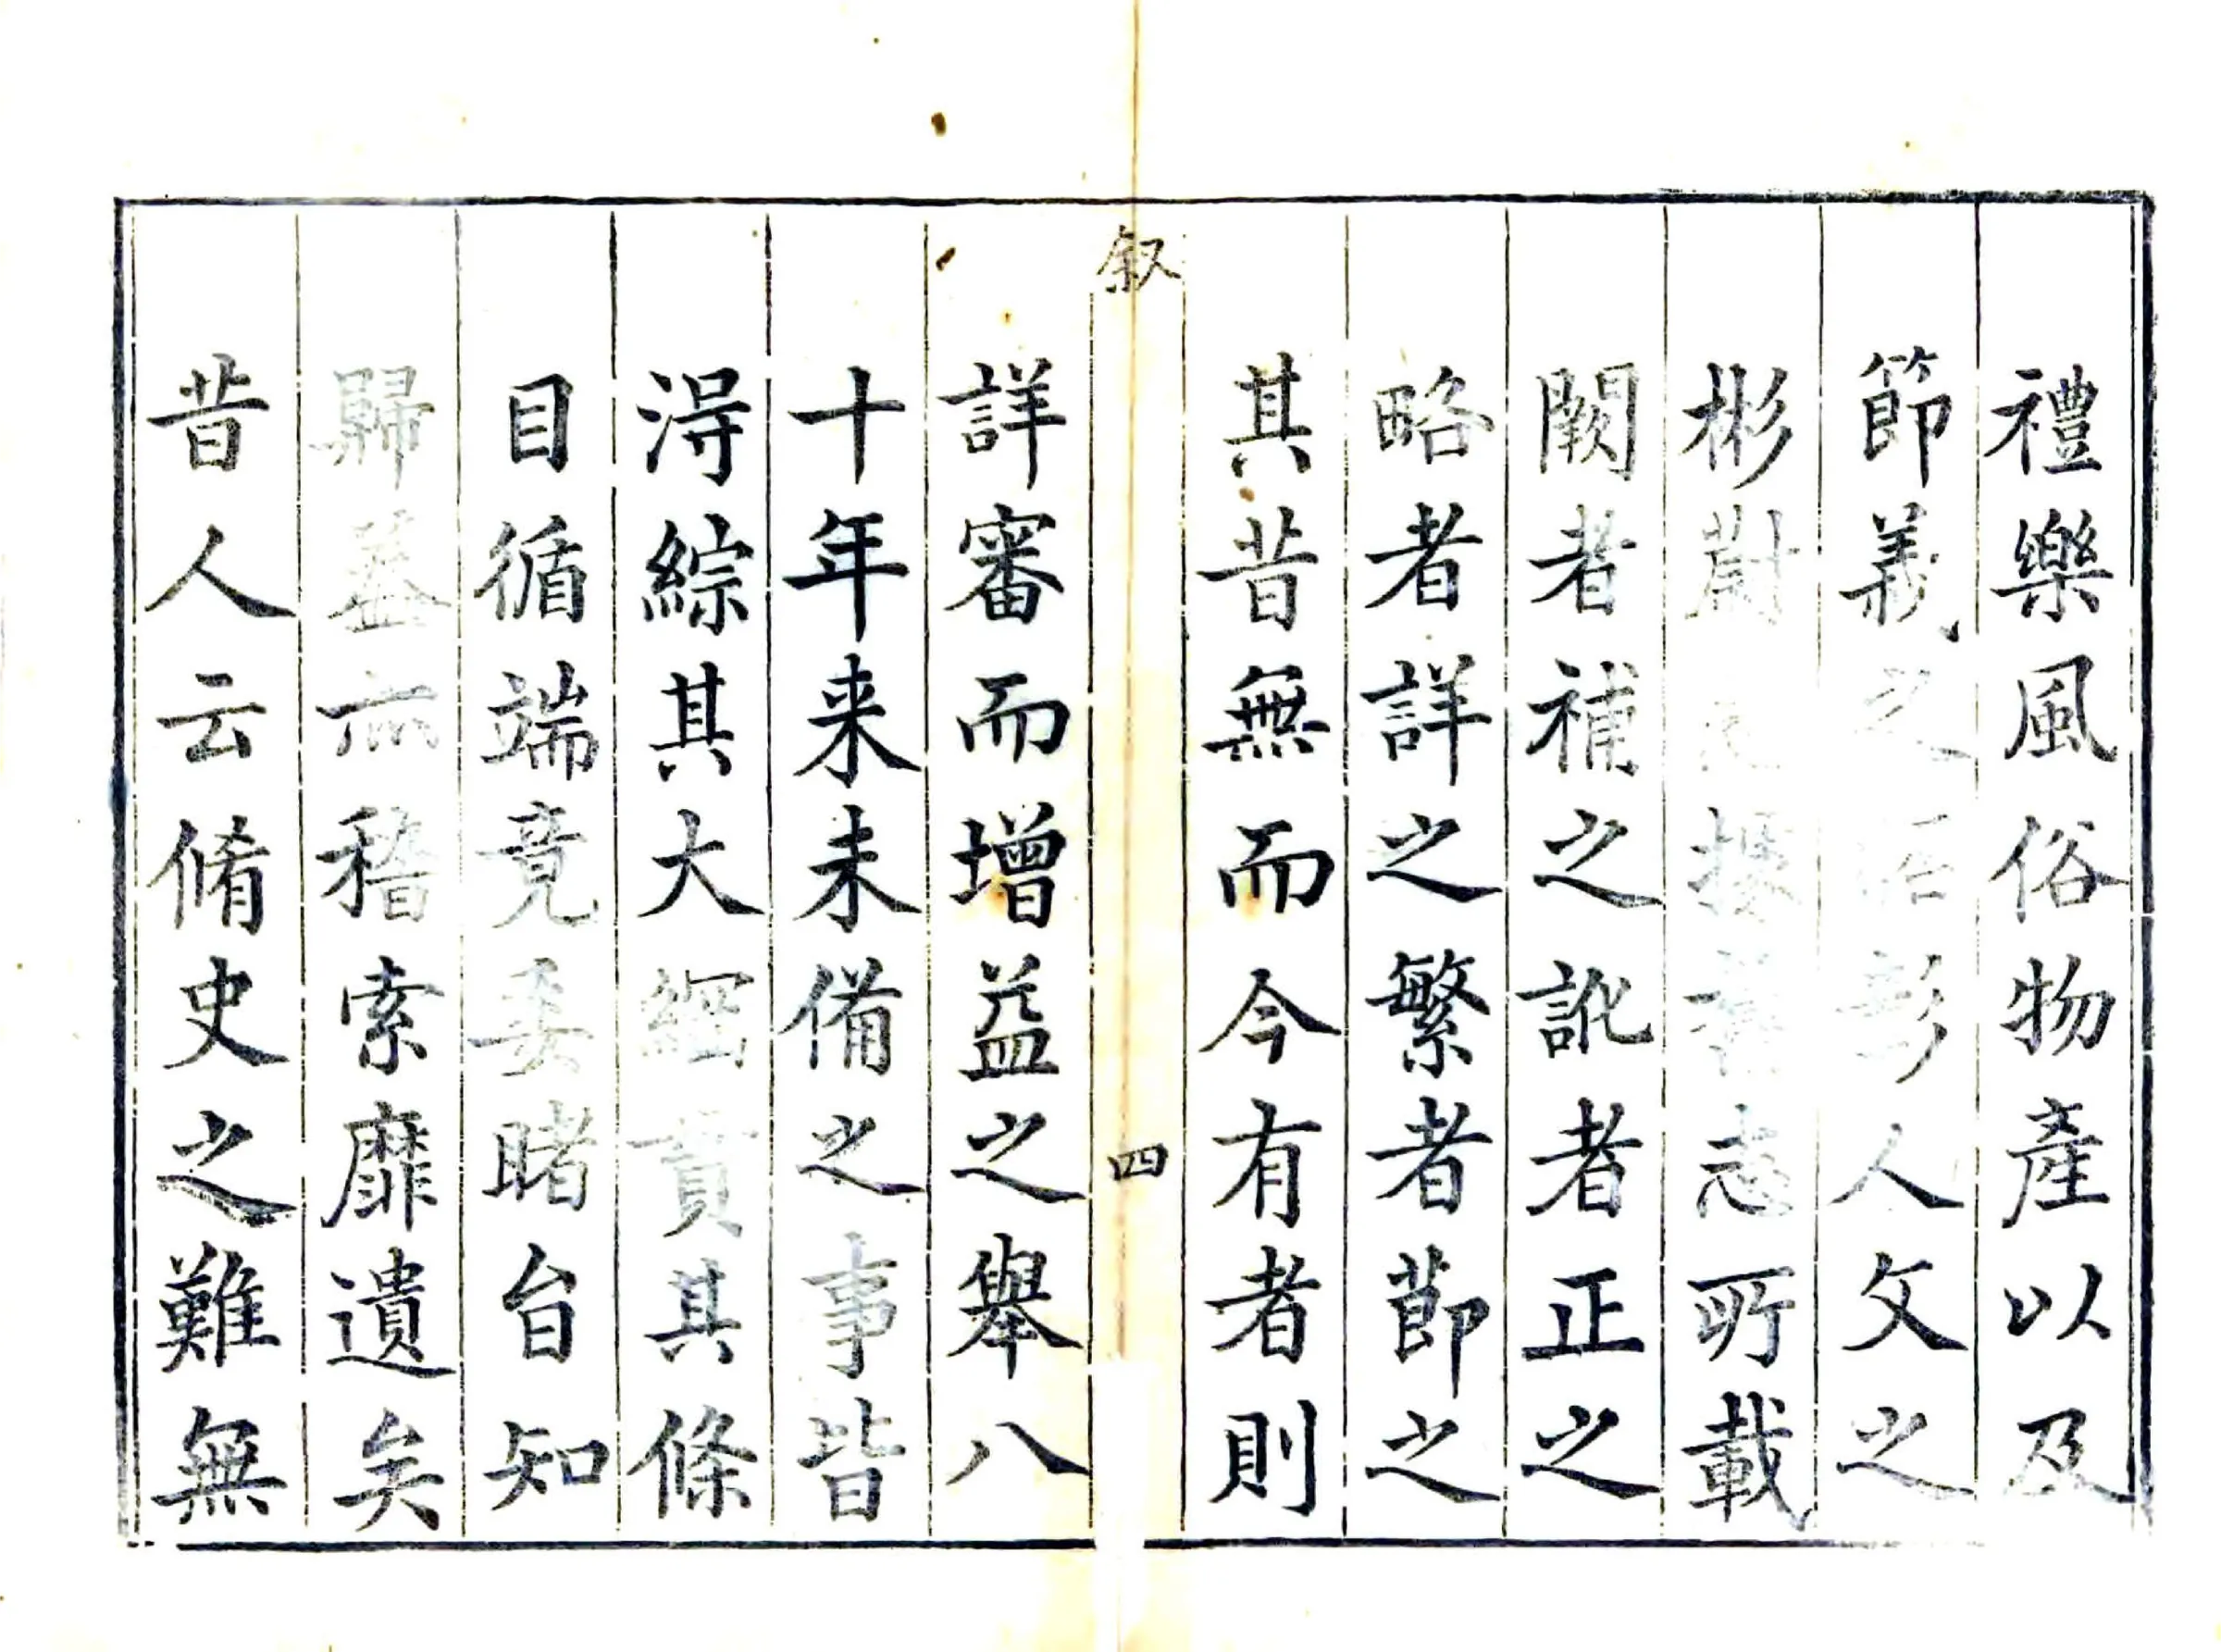 禮樂風俗物產以及
節義之 彰人文之
彬蔚 據舊志所載
闕者補之訛者正之
略者詳之繁者節之
其昔無而今有者則
叙
四
詳審而增益之舉八
十年来未備之事皆
淂綜其大綱貫其條
目循端竟委睹㠯知
歸蓋亦稽索靡遺矣
昔人云脩史之難無